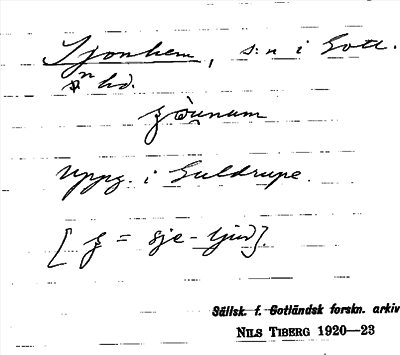 Sjonhem, s:n i Gotl.
n hd.
ʒωu̯num
Uppg. i Guldrupe.
[ ʒ = sje-ljud].
Sällsk. f. Gotländsk forskn. arkiv
NILS TIBERG 1920—23